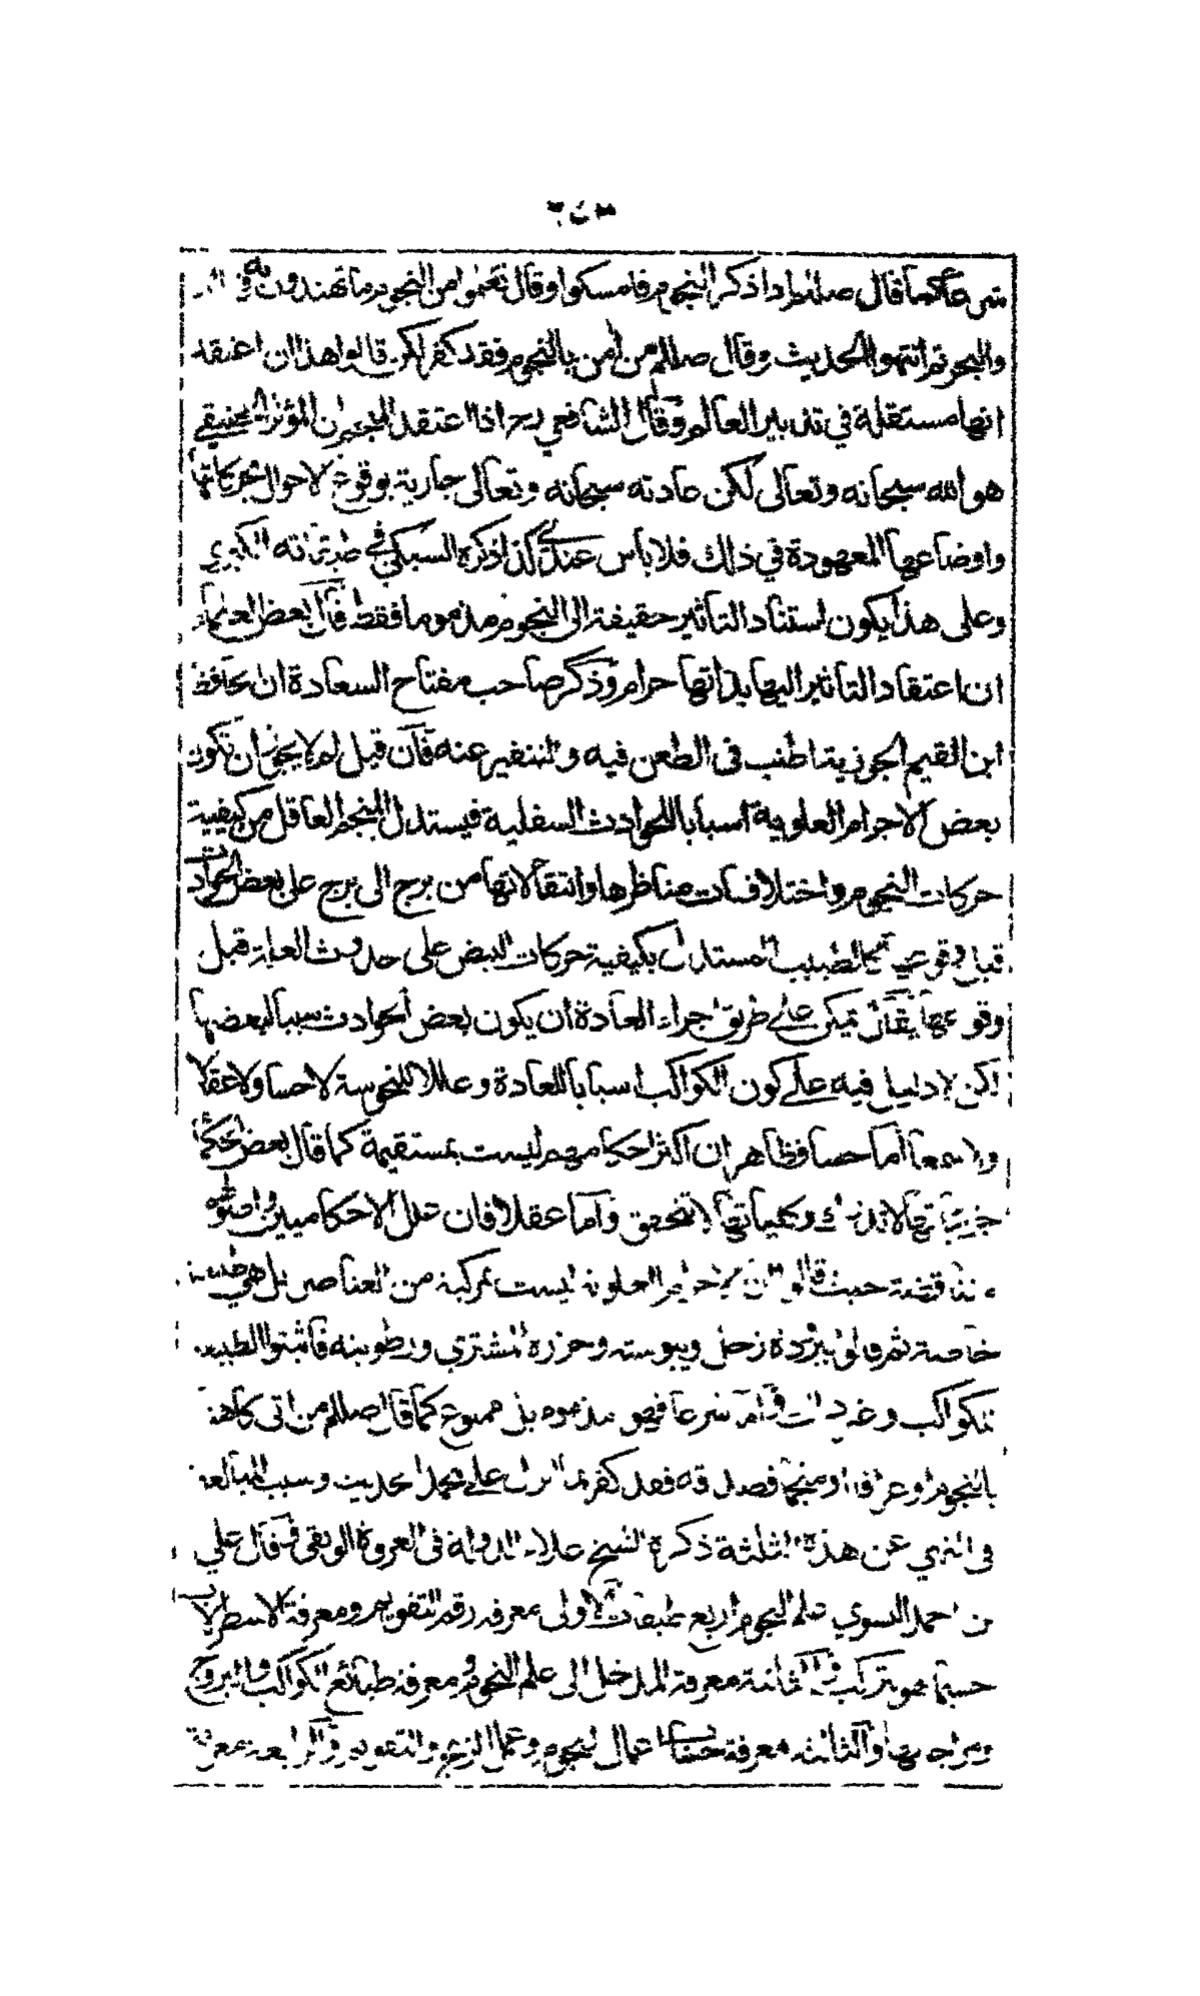 شرعا كما قال صلعم اذا ذكر النجوم فامسكوا وقال تعلموا من النجوم ما تهتدون به في البر
والبحر ثم انتهوا الحديث وقال صلعم من امن بالنجوم فقد كفر لكن قالوا هذا ان اعتقد
انها مستقلة في تدبير العالم وقال الشافعي رح اذا اعتقد المنجم ان المؤثر الحقيقي
هو الله سبحانه وتعالى لكن عادته سبحانه وتعالى جارية بوقوع الاحوال بحركاتها
واوضاعها المعهودة في ذلك فلا باس عندي كذا ذكره السبكي في طبقاته الكبرى
وعلى هذا يكون استناد التاثير حقيقة الى النجوم مذموما فقط قال بعض العلماء
ان اعتقاد التاثير اليها بذاتها حرام وذكر صاحب مفتاح السعادة ان الحافظ
ابن القيم الجوزية اطنب في الطعن فيه والتنفير عنه فان قيل لم لا يجوز ان تكون
بعض الاجرام العلوية اسبابا للحوادث السفلية فيستدل المنجم العاقل من كيفية
حركات النجوم واختلافات مناظرها وانتقالاتها من برج الى برج على بعض الحوادث
قبل وقوعها كما الطبيب المستدل بكيفية حركات النبض على حدوث العلة قبل
وقوعها يقال يمكن على طريق اجراء العادة ان يكون بعض الحوادث سببا لبعضها
لكن لا دليل فيه على كون الكواكب اسبابا للعادة وعللا للنحوسة لا حسا ولا عقلا
ولا سمعا اما حسا فظاهر ان اكثر احكامهم ليست بمستقيمة كما قال بعض الحكماء
جزئياتها لا تدرك وكلياتها لا تتحقق واما عقلا فان علل الاحكاميين واصولهم
متناقضة حيث قالوا ان الاجرام العلوية ليست بمركبة من العناصر بل هي طبيعة
خاصة ثم قالوا ببرودة زحل ويبوسته وحرارة المشتري ورطوبته فاثبتوا الطبيعة
للكواكب وغير ذلك واما شرعا فهو مذموم بل ممنوع كما قال صلعم من اتى كاهنا
بالنجوم او عرافا او منجما فصدقه فقد كفر بما انزل على محمد الحديث وسبب المبالغة
في النهي عن هذه الثلثة ذكره الشيخ علاء الدولة في العروة الوثقى وقال علي
بن احمد النسوي علم النجوم اربع طبقات الاولى معرفة رقم التقويم ومعرفة الاسطرلاب
حسبما هو يتركب والثانية معرفة المدخل الى علم النجوم ومعرفة طبائع الكواكب والبروج
ومزاجها والثالثة معرفة حساب اعمال النجوم وعمل الزيج والتقويم والرابعة معرفة